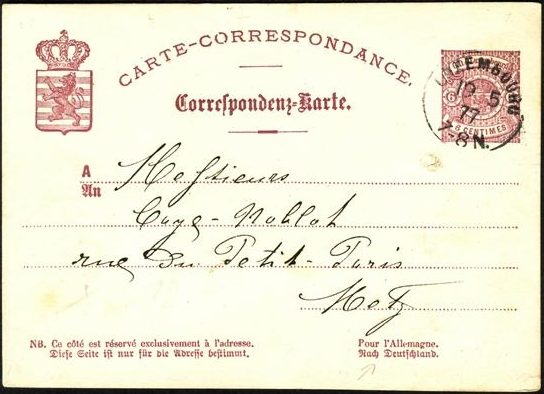 CARTE-CORRESPONDANCE.
Correspondenz-Karte.
LUXEMBOURG
10 5
77
7-8 N.
6 CENTIMES
A
An
Messieurs
Caye-Noblot
rue du Petit-Paris
Metz
NB. Ce côté est réservé exclusivement à l'adresse.
Diese Seite ist nur für die Adresse bestimmt.
Pour l'Allemagne.
Nach Deutschland.